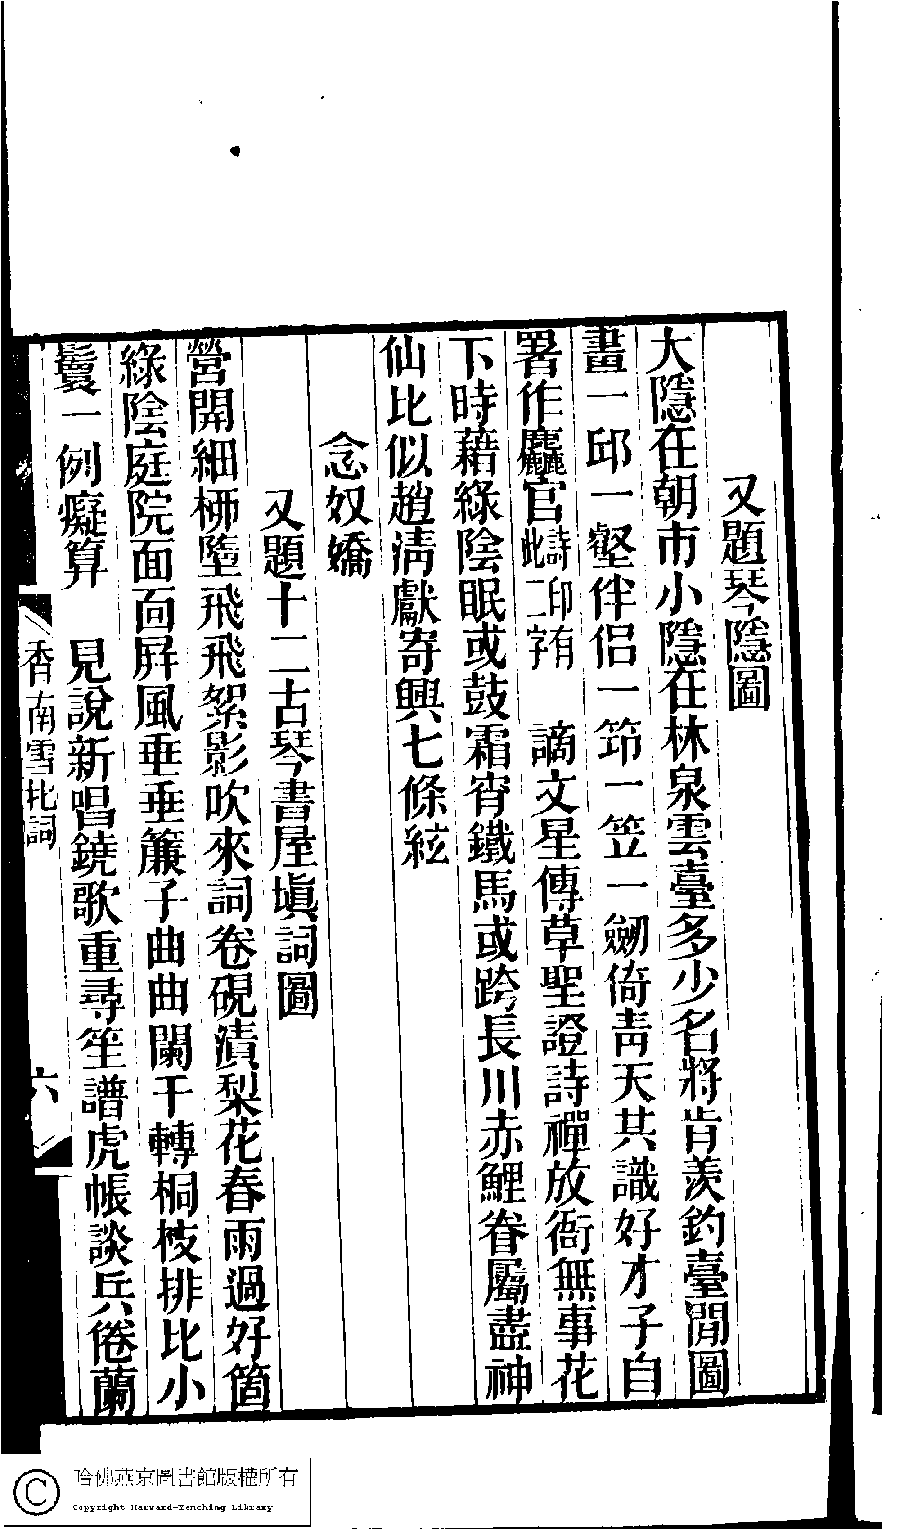 又題琴隱圖
大隱在朝市小隱在林泉雲臺多少名將肯羨釣臺閒圖
畫一邱一壑伴侶一笻一笠一劒倚青天其識好才子自
署作麤官詩印有此二字　謫文星傳草聖證詩禪放衙無事花
下時藉綠陰眠或鼓霜宵鐵馬或跨長川赤鯉眷屬盡神
仙比似趙淸獻寄興七條絃
念奴嬌
又題十二古琴書屋塡詞圖
營開細柳墮飛飛絮影吹來詞卷硯漬梨花春雨過好箇
綠陰庭院面面屛風垂垂簾子曲曲闌干轉桐枝排比小
鬟一例癡算　見說新唱鐃歌重尋笙譜虎帳談兵倦蘭
香南雪北詞
六
哈佛燕京圖書館版權所有
Copyright Harvard-Yenching Library